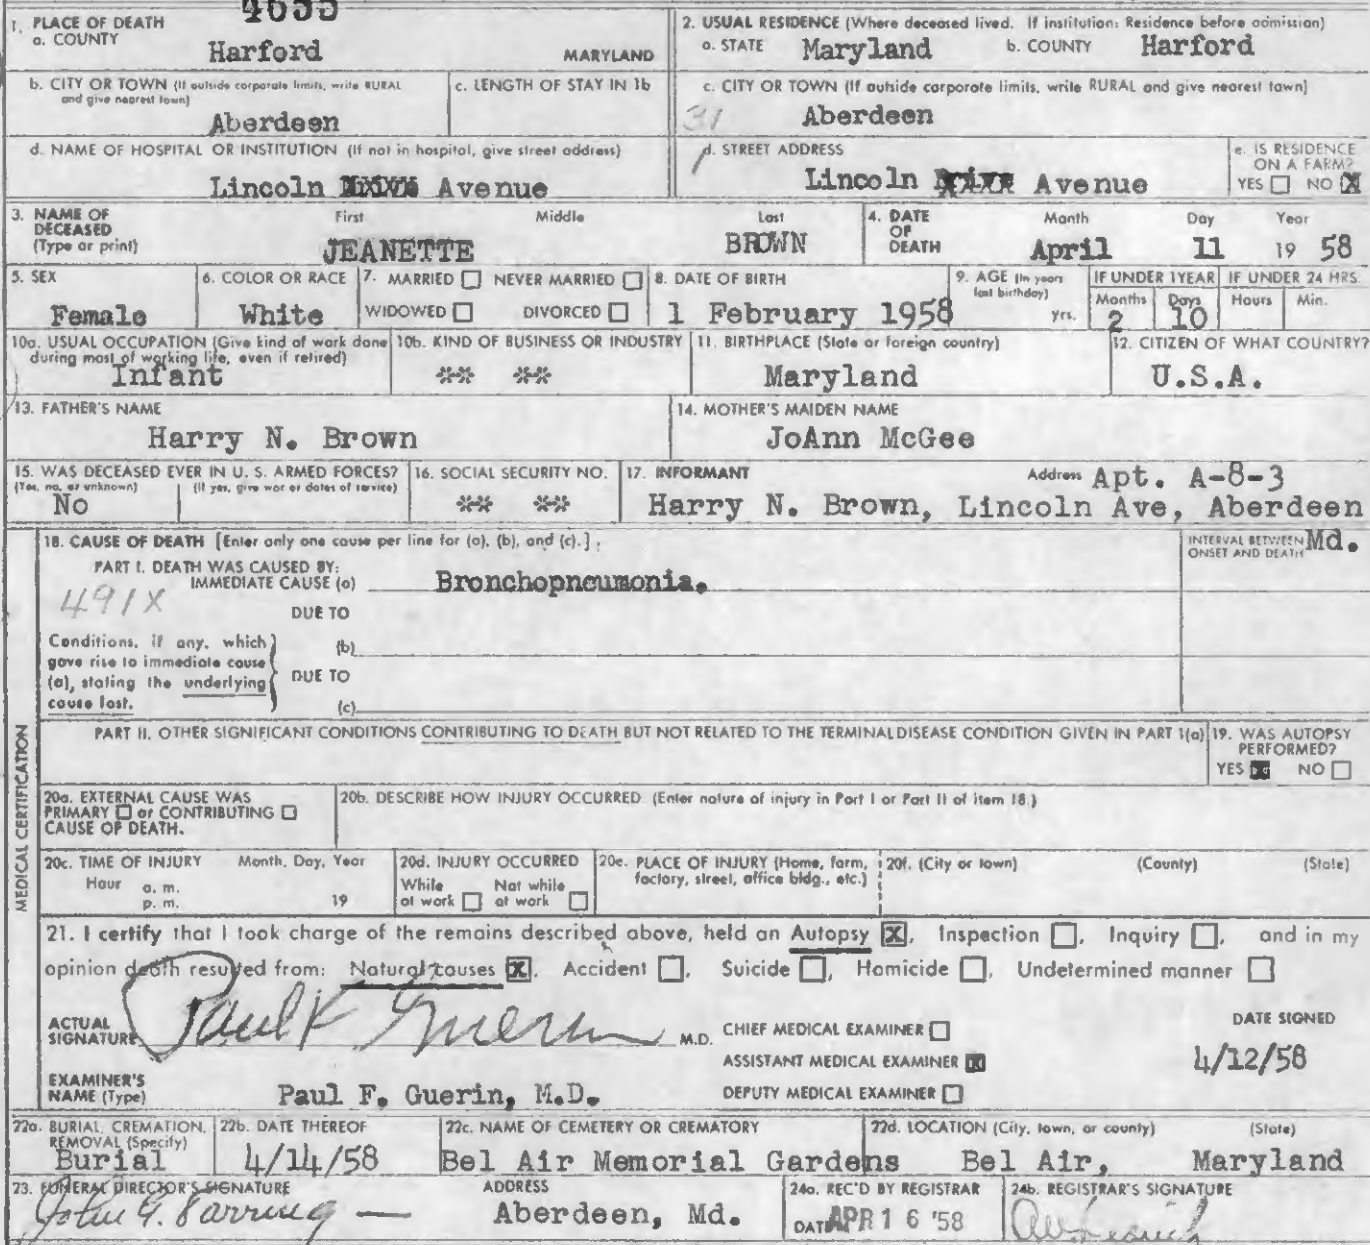 4655
1. PLACE OF DEATH
a. COUNTY
Harford
MARYLAND
2. USUAL RESIDENCE (Where deceased lived. If institution: Residence before admission)
a. STATE Maryland b. COUNTY Harford
b. CITY OR TOWN (If outside corporate limits, write RURAL and give nearest town)
Aberdeen
c. LENGTH OF STAY IN 1b
c. CITY OR TOWN (If outside corporate limits, write RURAL and give nearest town)
31 Aberdeen
d. NAME OF HOSPITAL OR INSTITUTION (If not in hospital, give street address)
Lincoln Avenue
d. STREET ADDRESS
Lincoln Avenue
e. IS RESIDENCE ON A FARM?
YES NO X
3. NAME OF DECEASED (Type or print)
First Middle Last
JEANETTE BROWN
4. DATE OF DEATH
Month Day Year
April 11 19 58
5. SEX
Female
6. COLOR OR RACE
White
7. MARRIED NEVER MARRIED
WIDOWED DIVORCED
8. DATE OF BIRTH
1 February 1958
9. AGE (In years last birthday)
yrs.
IF UNDER 1 YEAR
Months Days
2 10
IF UNDER 24 HRS.
Hours Min.
10a. USUAL OCCUPATION (Give kind of work done during most of working life, even if retired)
Infant
10b. KIND OF BUSINESS OR INDUSTRY
** **
11. BIRTHPLACE (State or foreign country)
Maryland
12. CITIZEN OF WHAT COUNTRY?
U.S.A.
13. FATHER'S NAME
Harry N. Brown
14. MOTHER'S MAIDEN NAME
JoAnn McGee
15. WAS DECEASED EVER IN U. S. ARMED FORCES?
(Yes, no, or unknown) (If yes, give war or dates of service)
No
16. SOCIAL SECURITY NO.
** **
17. INFORMANT Address Apt. A-8-3
Harry N. Brown, Lincoln Ave, Aberdeen
Md.
18. CAUSE OF DEATH [Enter only one cause per line for (a), (b), and (c).]
INTERVAL BETWEEN ONSET AND DEATH
PART I. DEATH WAS CAUSED BY:
IMMEDIATE CAUSE (a) Bronchopneumonia.
491X
DUE TO
Conditions, if any, which gave rise to immediate cause (a), stating the underlying cause last.
(b)
DUE TO
(c)
PART II. OTHER SIGNIFICANT CONDITIONS CONTRIBUTING TO DEATH BUT NOT RELATED TO THE TERMINAL DISEASE CONDITION GIVEN IN PART I(a)
19. WAS AUTOPSY PERFORMED?
YES NO
MEDICAL CERTIFICATION
20a. EXTERNAL CAUSE WAS
PRIMARY or CONTRIBUTING
CAUSE OF DEATH.
20b. DESCRIBE HOW INJURY OCCURRED. (Enter nature of injury in Part I or Part II of item 18.)
20c. TIME OF INJURY Month, Day, Year
Hour a. m.
p. m. 19
20d. INJURY OCCURRED
While at work Not while at work
20e. PLACE OF INJURY (Home, farm, factory, street, office bldg., etc.)
20f. (City or town) (County) (State)
21. I certify that I took charge of the remains described above, held an Autopsy X, Inspection , Inquiry , and in my
opinion death resulted from: Natural causes X, Accident , Suicide , Homicide , Undetermined manner
ACTUAL SIGNATURE Paul F Guerin M.D.
CHIEF MEDICAL EXAMINER
ASSISTANT MEDICAL EXAMINER
DEPUTY MEDICAL EXAMINER
DATE SIGNED
4/12/58
EXAMINER'S NAME (Type) Paul F. Guerin, M.D.
22a. BURIAL, CREMATION, REMOVAL (Specify)
Burial
22b. DATE THEREOF
4/14/58
22c. NAME OF CEMETERY OR CREMATORY
Bel Air Memorial Gardens
22d. LOCATION (City, town, or county) (State)
Bel Air, Maryland
23. FUNERAL DIRECTOR'S SIGNATURE
John G. Tarring
ADDRESS
Aberdeen, Md.
24a. REC'D BY REGISTRAR
DATE APR 16 '58
24b. REGISTRAR'S SIGNATURE